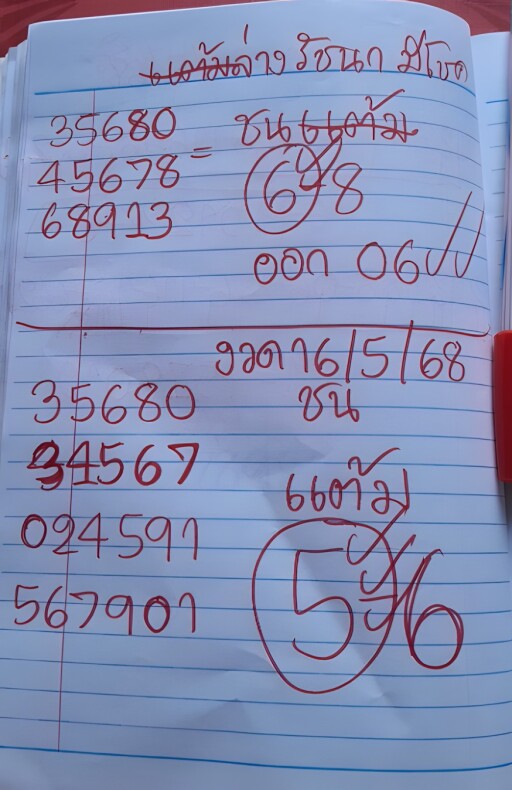 แต้มล่าง รัชนก มีโชค
35680
45678 = ชนแต้ม
68913
6 8
ออก 06
งวด 16/5/68
35680 ชน
34567
แต้ม
024591
567901
5 6